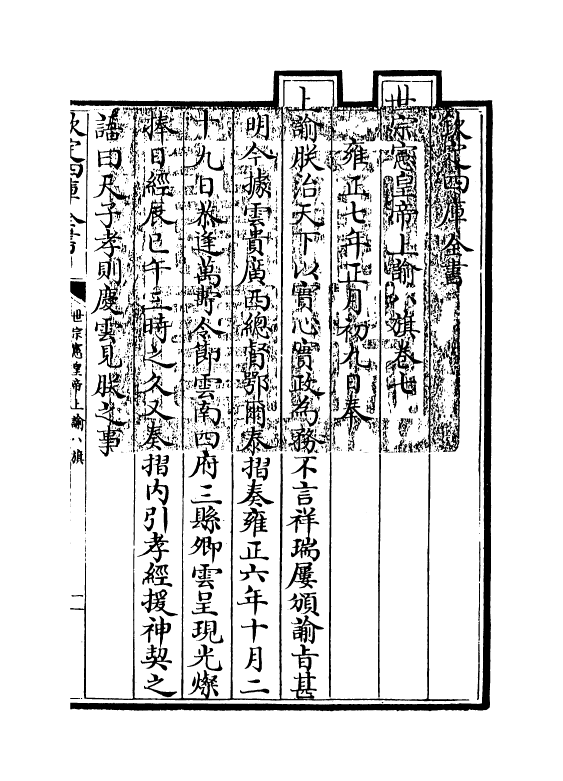 欽定四庫全書
世宗憲皇帝上諭八旗卷七
雍正七年正月初九日奉
上諭朕治天下以實心實政為務不言祥瑞屢頒諭旨甚
明今據雲貴廣西總督鄂爾泰摺奏雍正六年十月二
十九日恭逢萬壽令節雲南四府三縣卿雲呈現光燦
捧日經辰巳午三時之久又奏摺內引孝經援神契之
語曰天子孝則慶雲見朕之事
欽定四庫全書
世宗憲皇帝上諭八旗
一